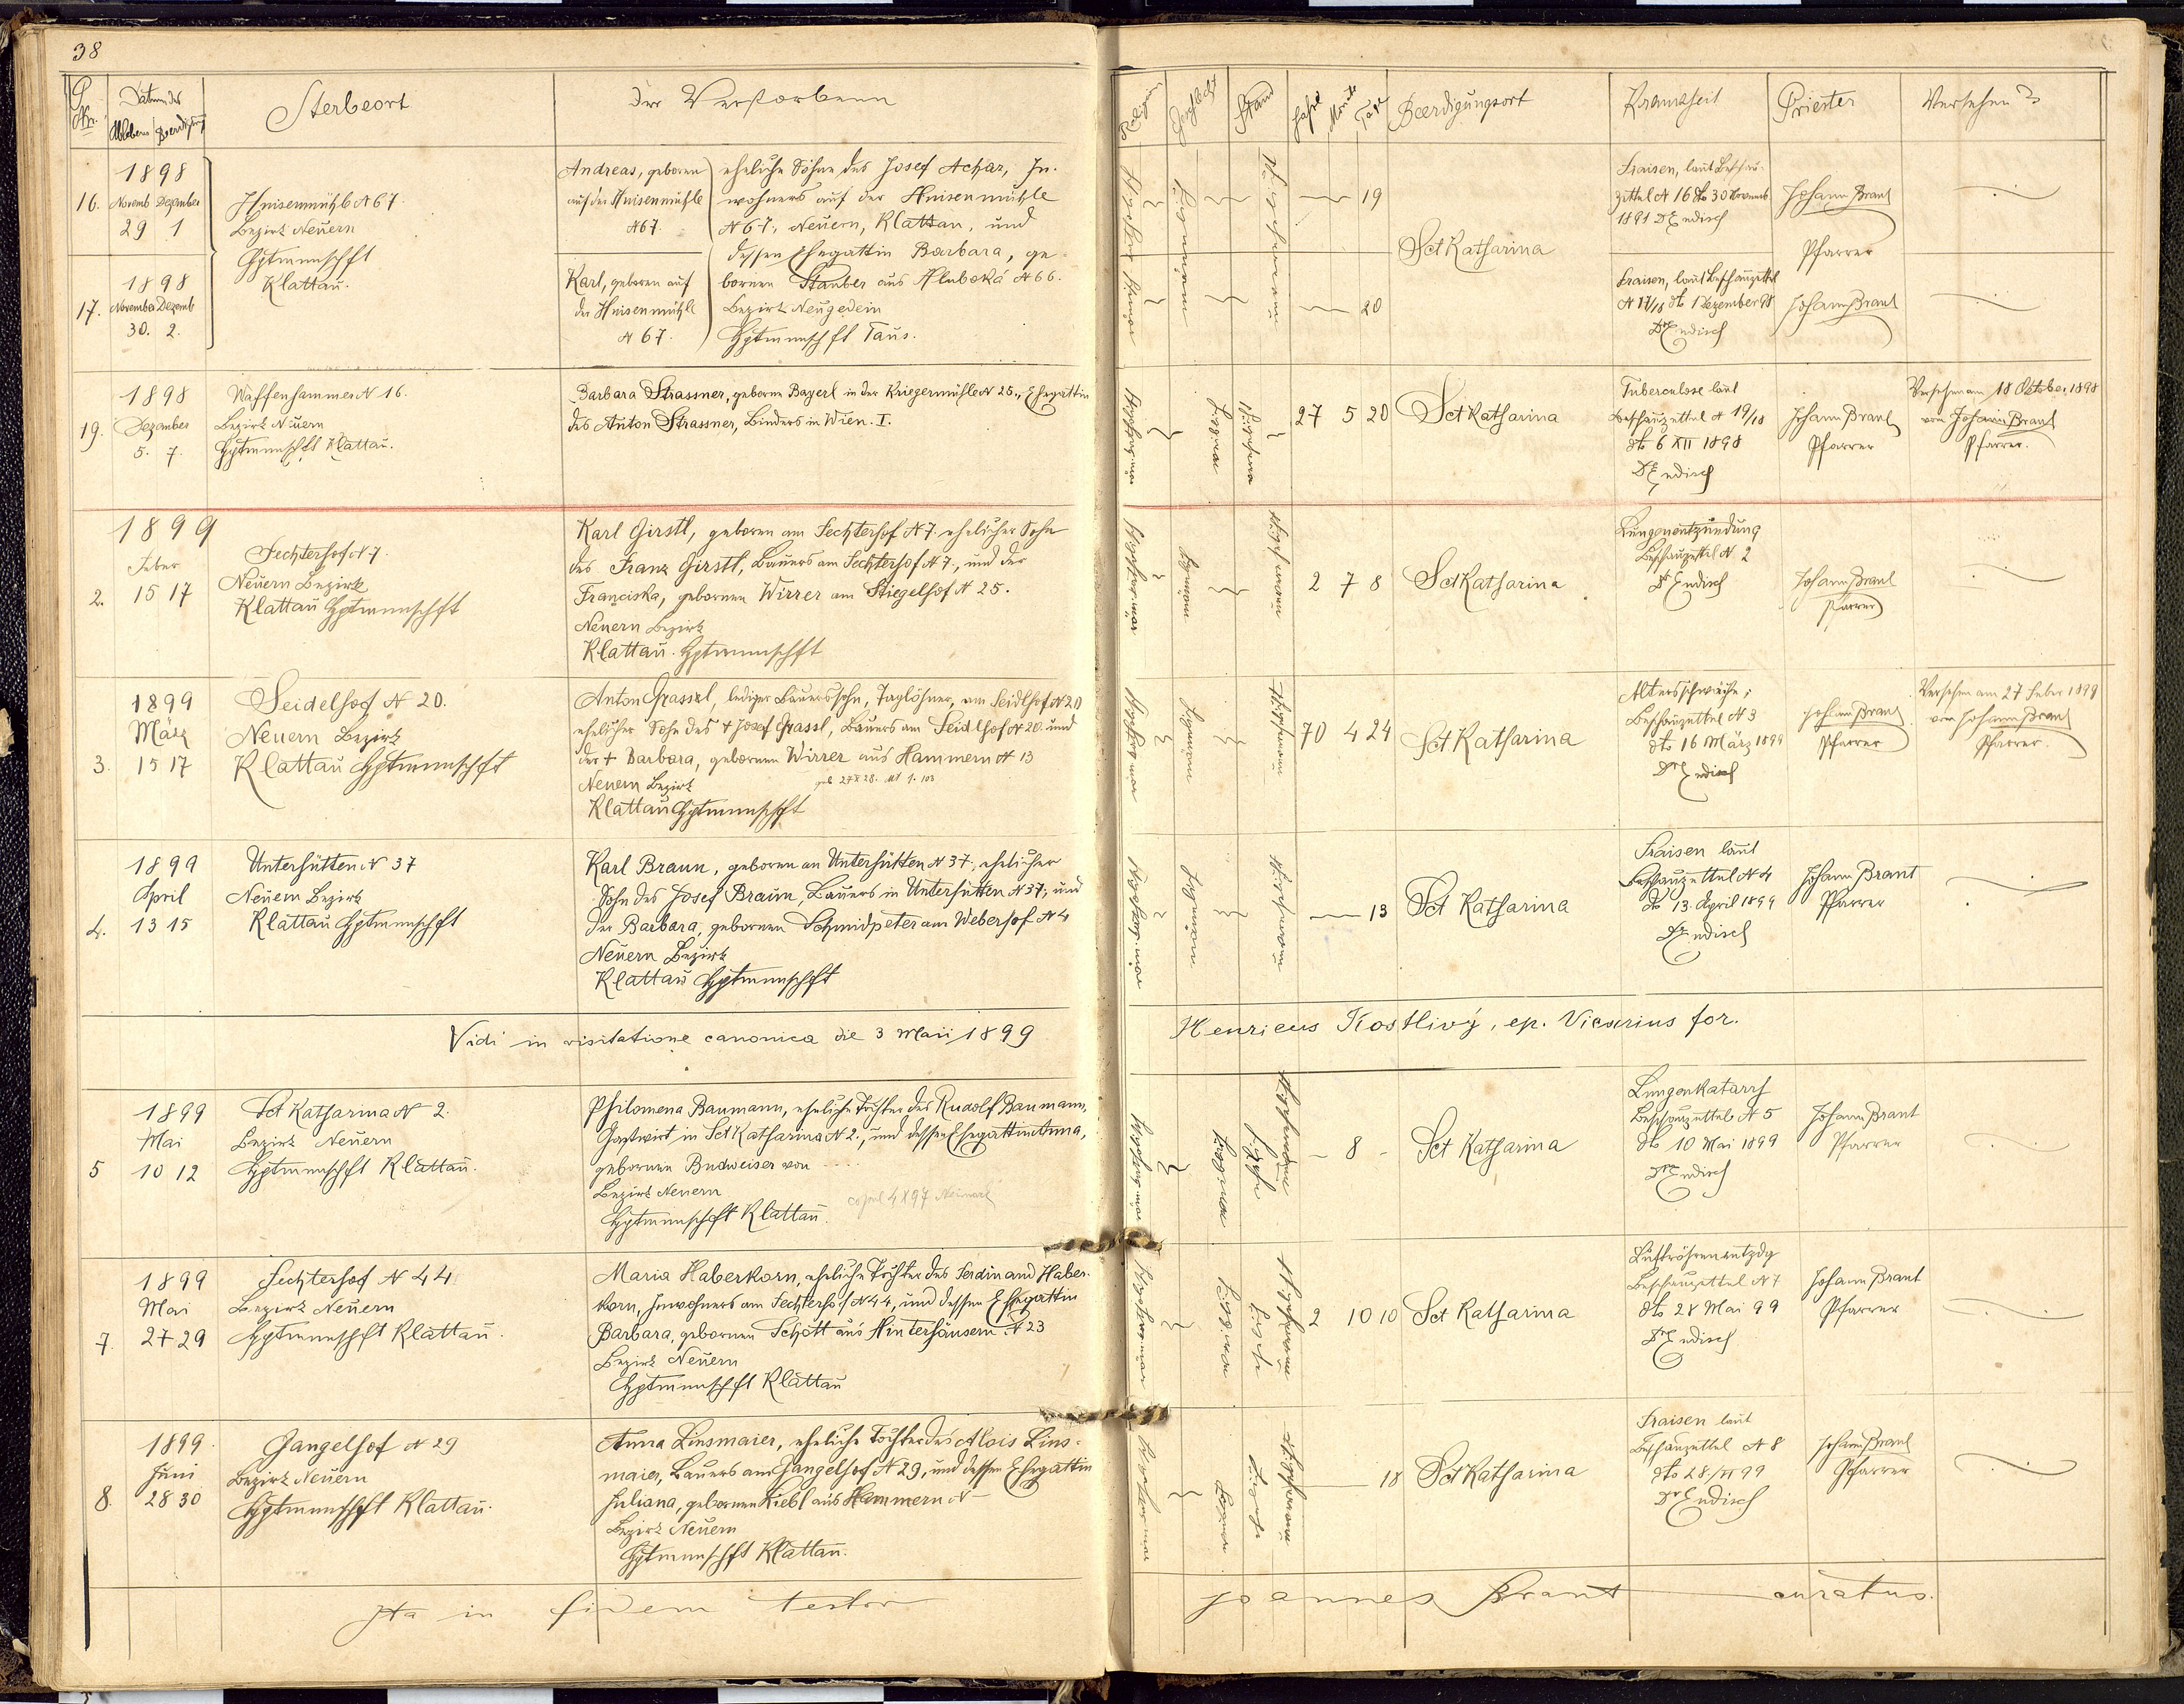 38
Nr.
Datum des
Ablebens Beerdigung
Sterbeort
der Verstorbenen
Religion
Geschlecht
Stand
Jahre
Monate
Tage
Beerdigungsort
Krankheit
Priester
Versehen
16.
1898
Novemb Dezember
29 1
Huisenmühle N 67
Bezirk Neuern
Hptmnnschft
Klattau.
Andreas, geboren
auf der Huisenmühle
N 67.
eheliche Söhne des Josef Achar, In-
wohners auf der Huisenmühle
N 67, Neuern, Klattau, und
dessen Ehegattin Barbara, ge-
bornen Stauber aus Hluboká N 66.
Bezirk Neugedein
Hptmnnschft Taus.
19
Sct Katharina
Fraisen, laut Beschau-
zettel N 16 dto 30 Novemb
1891 Dr Endisch
Johann Brant
Pfarrer
17.
1898
November Dezemb
30. 2.
Karl, geboren auf
der Huisenmühle
N 67.
20
Fraisen, laut Beschauzettel
N 17/18 dto 1 Dezember 98
Dr Endisch
Johann Brant
19.
1898
Dezember
5. 7.
Waffenhammer N 16.
Bezirk Neuern
Hptmnnschft Klattau.
Barbara Strassner, geborne Bayerl in der Kriegermühle N 25., Ehegattin
des Anton Strassner, Binders in Wien. I.
27 5 20
Sct Katharina
Tuberculose laut
Beschauzettel N 19/18
dto 6 XII 1898
Dr Endisch
Johann Brant
Pfarrer
Versehen am 18 Oktober 1898
von Johann Brant
Pfarrer.
2.
1899
Feber
15 17
Fechterhof N 7.
Neuern Bezirk
Klattau Hptmnnschft
Karl Girstl, geboren am Fechterhof N 7. ehelicher Sohn
des Franz Girstl, Bauers am Fechterhof N 7., und der
Franciska, gebornen Wirrer am Stiegelhof N 25.
Neuern Bezirk
Klattau. Hptmnnschft
2 7 8
Sct Katharina
Lungenentzündung
Beschauzettel N 2
Dr Endisch
Johann Brant
Pfarrer
3.
1899
März
15 17
Seidelhof N 20.
Neuern Bezirk
Klattau Hptmnnschft
Anton Grassl, lediger Bauerssohn, Taglöhner, am Seidlhof N 20
ehelicher Sohn des + Josef Grassl, Bauers am Seidlhof N 20. und
der + Barbara, gebornen Wirrer aus Hammern N 13
Neuern Bezirk
Klattau Hptmnnschft
70 4 24
Sct Katharina
Altersschwäche;
Beschauzettel N 3
dto 16 März 1899
Dr Endisch
Johann Brant
Pfarrer
Versehen am 27 Feber 1899
von Johann Brant
Pfarrer.
4.
1899
April
13 15
Unterhütten N 37
Neuern Bezirk
Klattau Hptmnnschft
Karl Braun, geboren an Unterhütten N 37; ehelicher
Sohn des Josef Braun, Bauers in Unterhütten N 37; und
der Barbara, gebornen Schmidpeter am Weberhof N 4
Neuern Bezirk
Klattau Hptmnnschft
13
Sct Katharina
Fraisen laut
Beschauzettel N 4
dto 13. April 1899
Dr Endisch
Johann Brant
Pfarrer
Vidi in visitatione canonica die 3 Maii 1899
Henricus Kostlivý, ep. Vicarius for.
5
1899
Mai
10 12
Sct Katharina N 2.
Bezirk Neuern
Hptmnnschft Klattau.
Philomena Baumann, eheliche Tochter des Rudolf Baumann,
Gastwirt in Sct Katharina N 2., und dessen Ehegattin Anna,
gebornen Budweiser von
Bezirk Neuern
Hptmnnschft Klattau.
copul 4 X 97 Neumark
8
Sct Katharina
Lungenkatarrh
Beschauzettel N 5
dto 10 Mai 1899
Dr Endisch
Johann Brant
Pfarrer
7.
1899
Mai
27 29
Fechterhof N 44.
Bezirk Neuern
Hptmnnschft Klattau.
Maria Haberkorn, eheliche Tochter des Ferdinand Haber-
korn, Inwohners am Fechterhof N 44, und dessen Ehegattin
Barbara, gebornen Schott aus Hinterhäusern N 23
Bezirk Neuern
Hptmnnschft Klattau
2 10 10
Sct Katharina
Luftröhrenentzdg
Beschauzettel N 7
dto 28 Mai 99
Dr Endisch
Johann Brant
Pfarrer
8.
1899.
Juni
28 30
Gangelhof N 29
Bezirk Neuern
Hptmnnschft Klattau.
Anna Linsmaier, eheliche Tochter des Alois Lins-
maier, Bauers am Gangelhof N 29, und dessen Ehegattin
Juliana, gebornen Kiebl aus Hammern N
Bezirk Neuern
Hptmnnschft Klattau.
18
Sct Katharina
Fraisen laut
Beschauzettel N 8
dto 28/VI 99
Dr Endisch
Johann Brant
Pfarrer
Ita in fidem testor
Joannes Brant curatus.